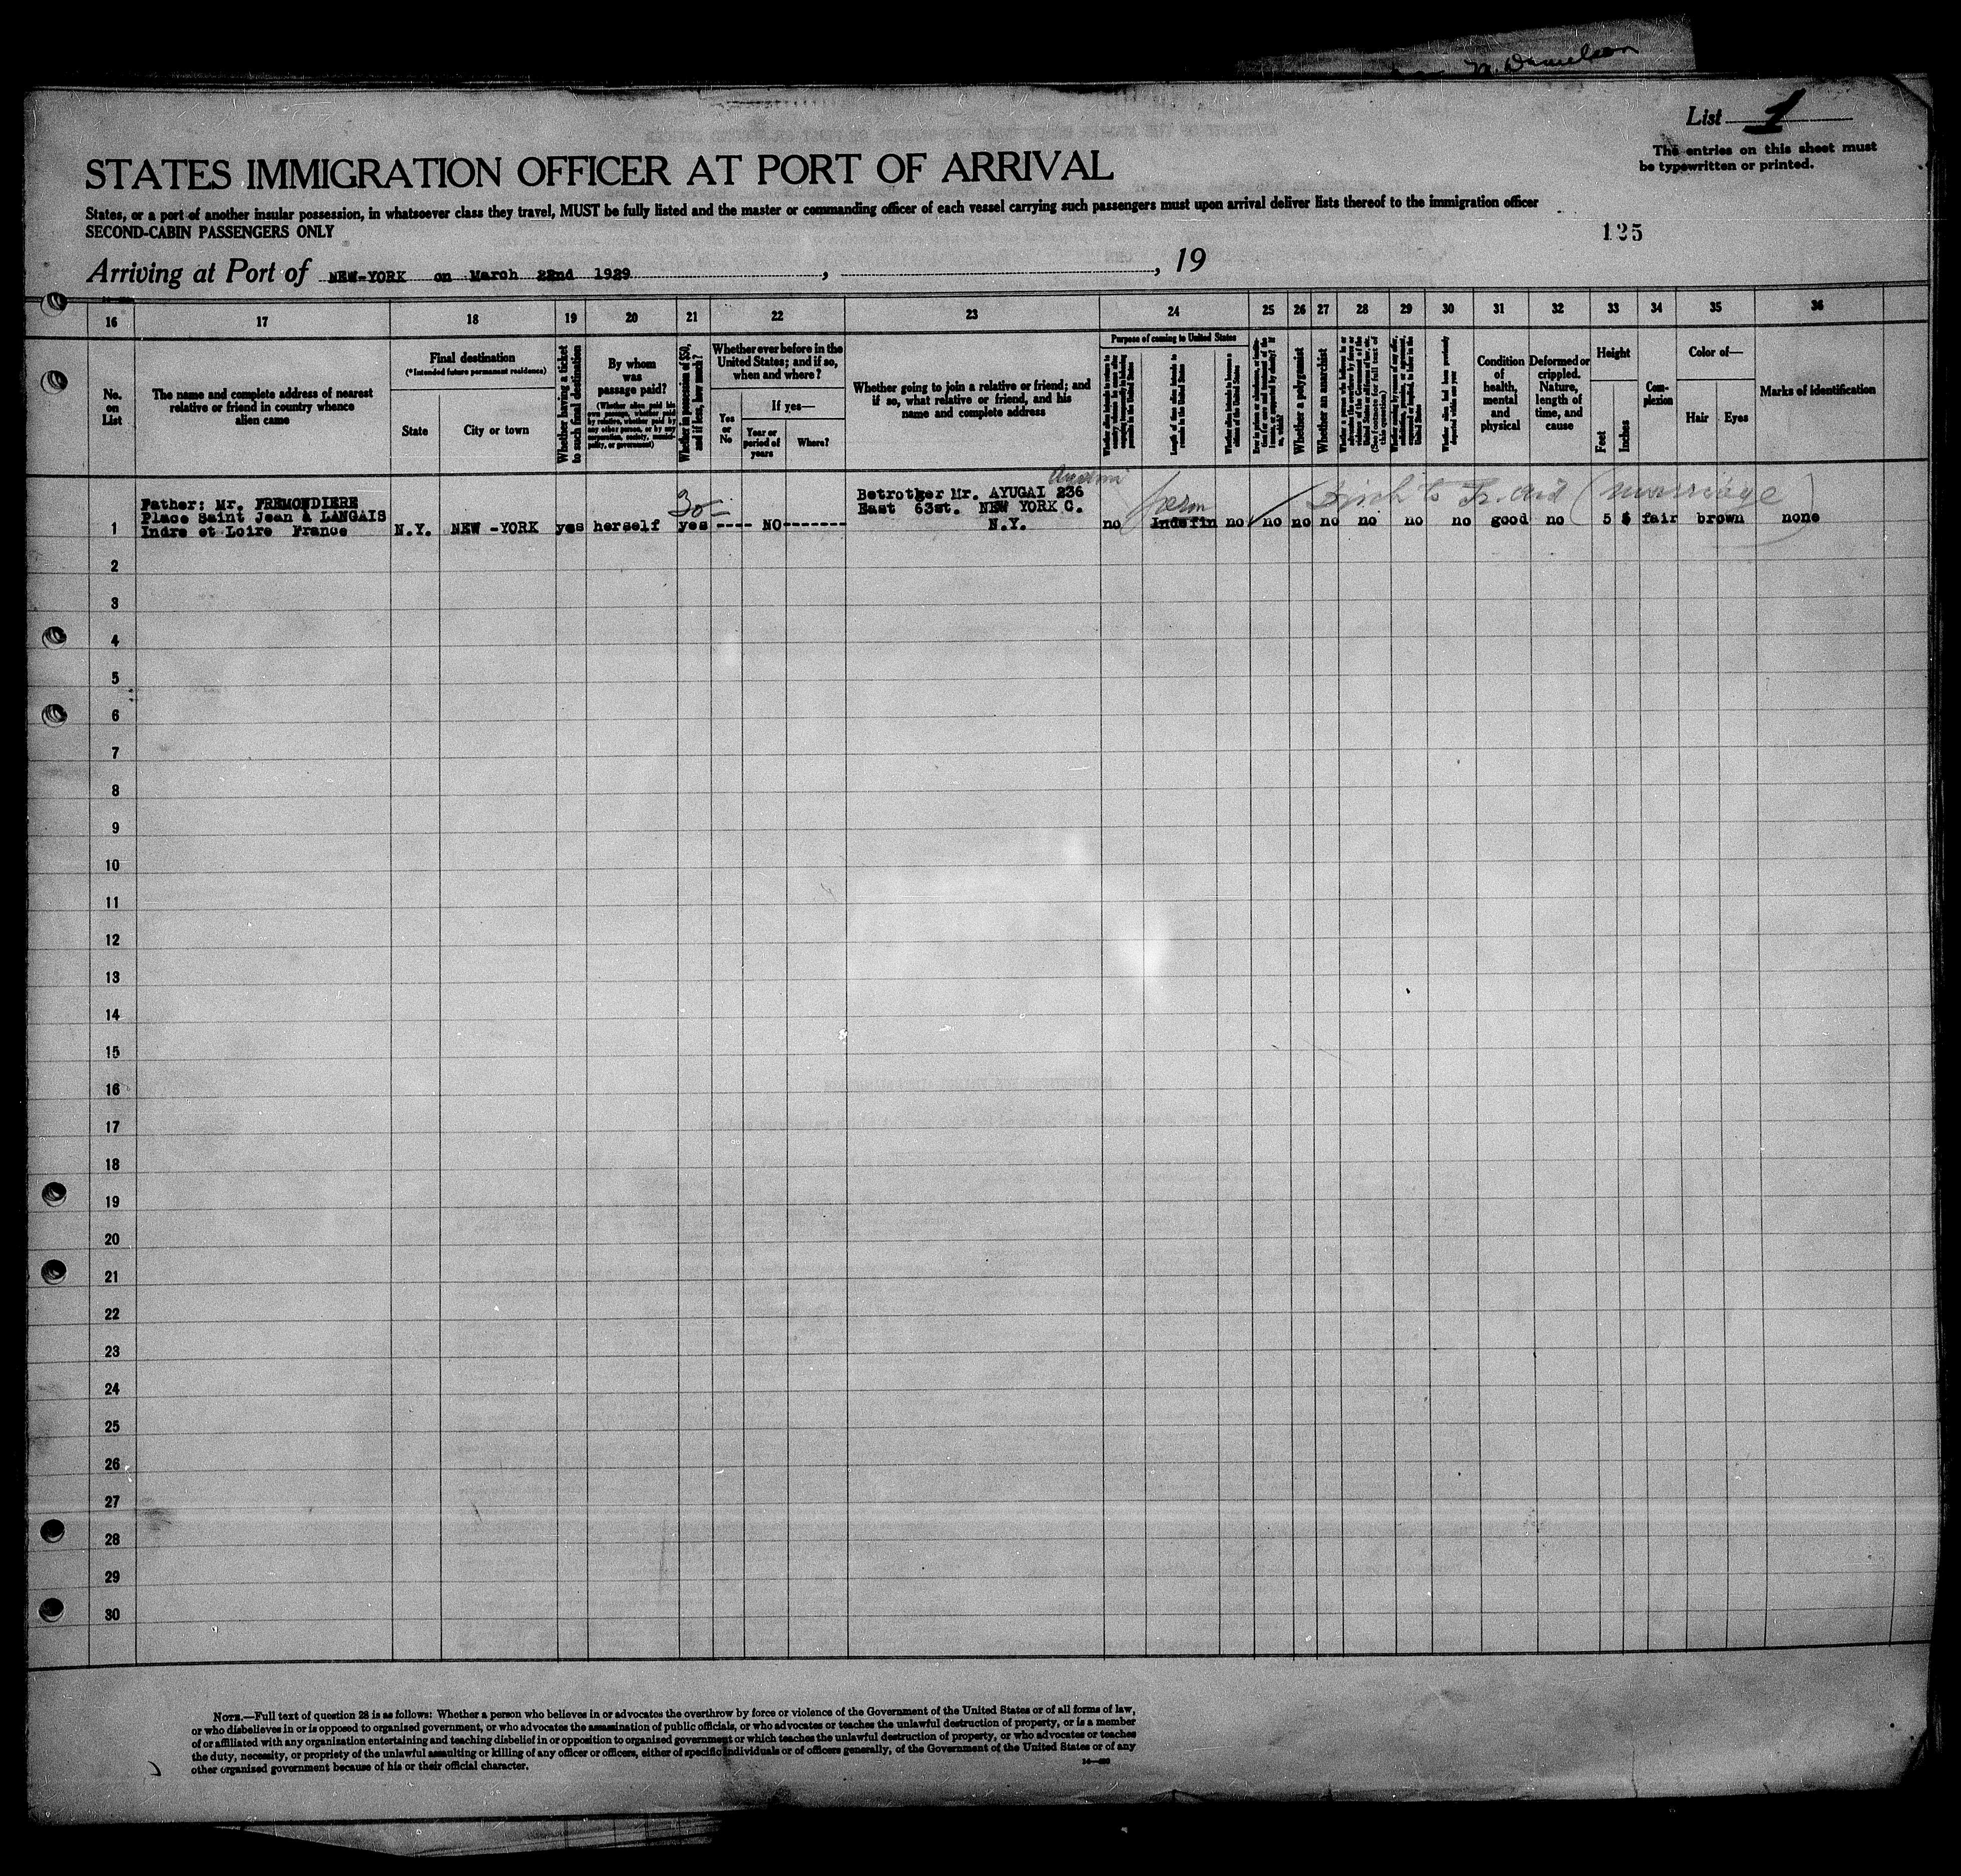 List 1
The entries on this sheet must
be typewritten or printed.
STATES IMMIGRATION OFFICER AT PORT OF ARRIVAL
States, or a port of another insular possession, in whatsoever class they travel, MUST be fully listed and the master or commanding officer of each vessel carrying such passengers must upon arrival deliver lists thereof to the immigration officer
SECOND-CABIN PASSENGERS ONLY
125
Arriving at Port of NEW-YORK on March 22nd 1929, , 19
16 17 18 19 20 21 22 23 24 25 26 27 28 29 30 31 32 33 34 35 36
No.
on
List
The name and complete address of nearest
relative or friend in country whence
alien came
Final destination
(*Intended future permanent residence)
State
City or town
Whether having a ticket
to such final destination
By whom
was
passage paid?
(Whether alien paid his
own passage, whether paid
by relative, whether paid by
any other person, or by any
corporation, society, munici-
pality, or government)
Whether in possession of $50,
and if less, how much?
Whether ever before in the
United States; and if so,
when and where?
Yes
or
No
If yes—
Year or
period of
years
Where?
Whether going to join a relative or friend; and
if so, what relative or friend, and his
name and complete address
Purpose of coming to United States
Length of time alien intends to
remain in the United States
Whether alien intends to become a
citizen of the United States
Whether a polygamist
Whether an anarchist
Condition
of
health,
mental
and
physical
Deformed or
crippled.
Nature,
length of
time, and
cause
Height
Feet
Inches
Com-
plexion
Color of—
Hair
Eyes
Marks of identification
Father: Mr. FREMONDIERE
Place Saint Jean à LANGAIS
Indre et Loire France
1
N.Y. NEW -YORK yes herself
30-
yes ---- NO-------
Betrother Mr. AYUGAI 236
East 63st. NEW YORK C.
N.Y.
perm
no Indefin no no no no no no no good no 5 5 fair brown none
(marriage)
2
3
4
5
6
7
8
9
10
11
12
13
14
15
16
17
18
19
20
21
22
23
24
25
26
27
28
29
30
NOTE.—Full text of question 28 is as follows: Whether a person who believes in or advocates the overthrow by force or violence of the Government of the United States or of all forms of law,
or who disbelieves in or is opposed to organized government, or who advocates the assassination of public officials, or who advocates or teaches the unlawful destruction of property, or is a member
of or affiliated with any organization entertaining and teaching disbelief in or opposition to organized government or which teaches the unlawful destruction of property, or who advocates or teaches
the duty, necessity, or propriety of the unlawful assaulting or killing of any officer or officers, either of specific individuals or of officers generally, of the Government of the United States or of any
other organized government because of his or their official character.